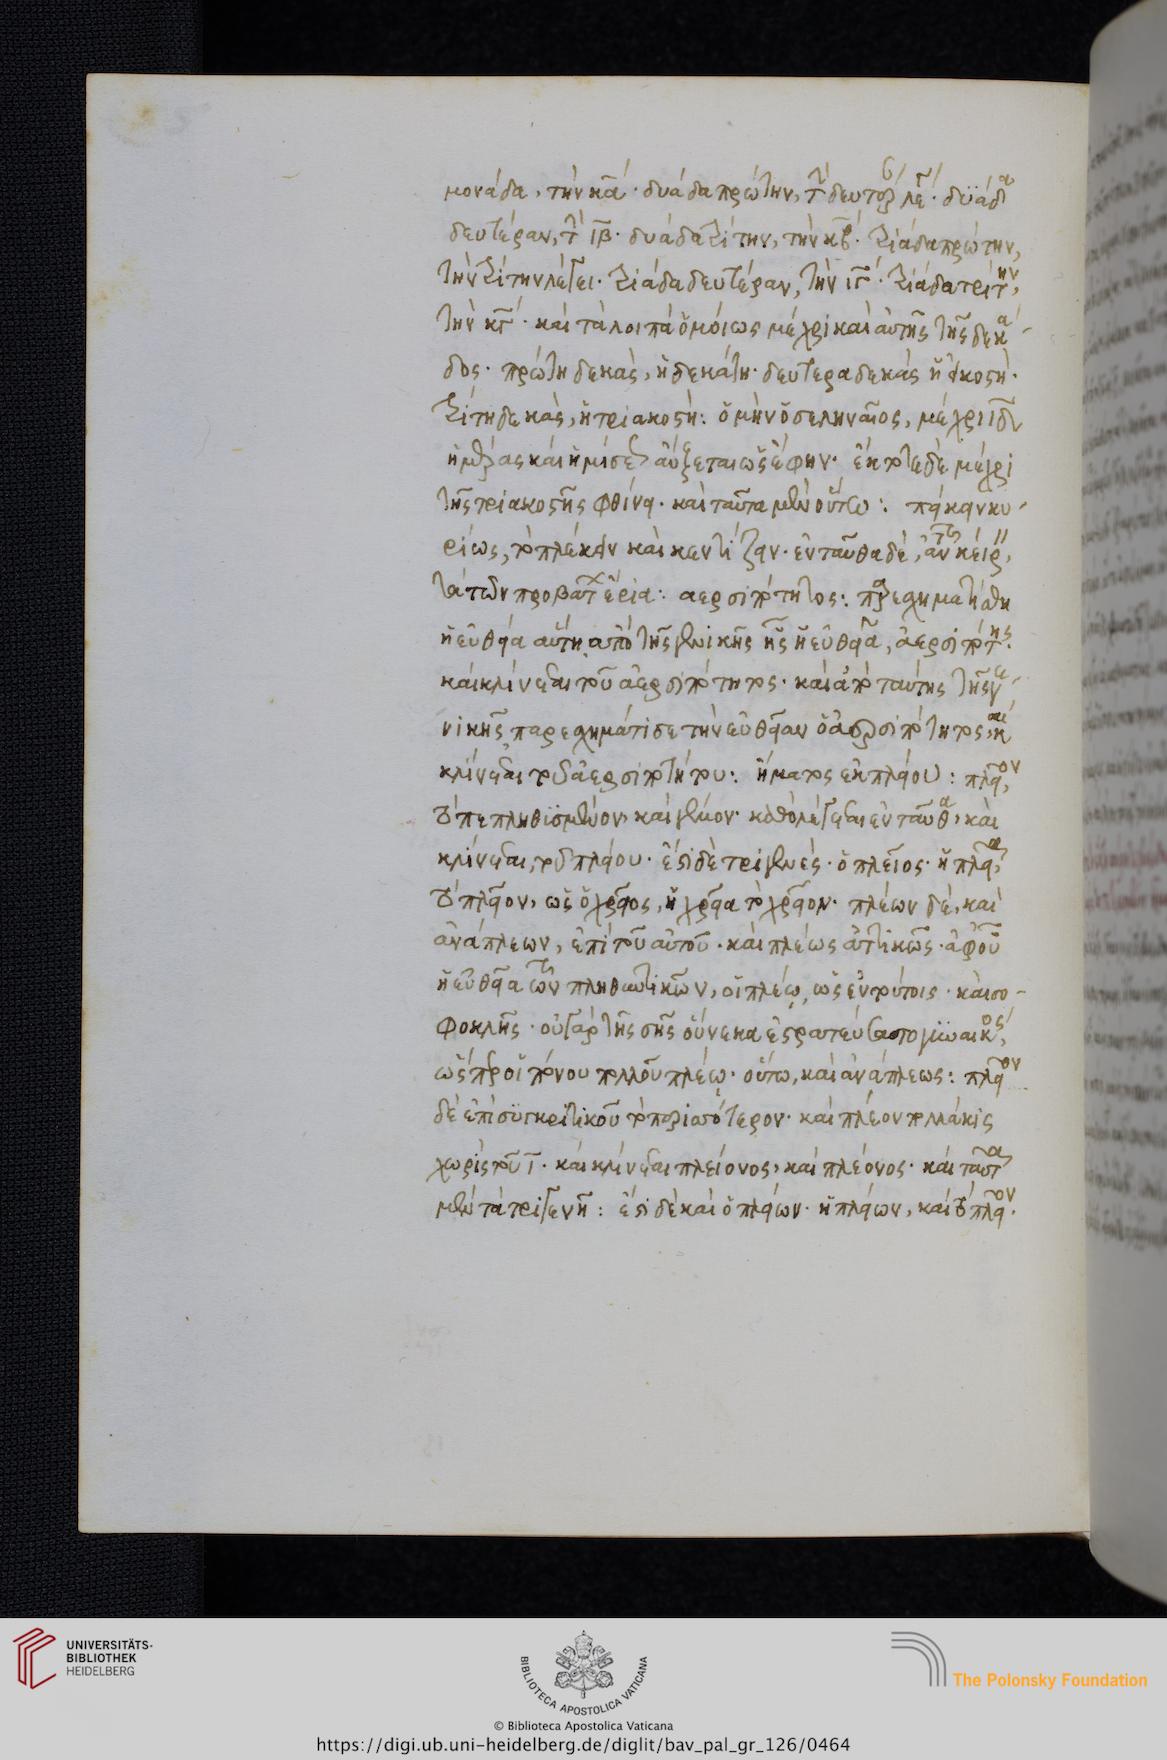 μονάδα, τὴν κ̅α̅· δυάδα πρώτην, τὴν δευτέραν λέγει· δυάδα
δευτέραν, τὴν ι̅β̅· δυάδα τρίτην, τὴν κ̅β̅· τριάδα πρώτην,
τὴν τρίτην λέγει· τριάδα δευτέραν, τὴν ι̅γ̅· τριάδα τρίτην,
τὴν κ̅γ̅· καὶ τὰ λοιπὰ ὁμοίως μέχρι καὶ αὐτῆς τῆς δεκά-
δος· πρώτη δεκὰς, ἡ δεκάτη· δευτέρα δεκὰς ἡ εἰκοστή·
τρίτη δεκὰς, ἡ τριακοστή: ὁ μὴν ὁ σεληναῖος, μέχρι ι̅δ̅
ἡμέρας καὶ ἡμίσε αὔξεται ὡς ἔφην· ἔκτοτε δὲ μέχρι
τῆς τριακοστῆς φθίνει· καὶ ταῦτα μὲν οὕτω: πείκειν κυ-
ρίως, τὸ πλέκειν καὶ κεντίζειν· ἐνταῦθα δὲ, ἀντὶ κείρειν,
τὰ τῶν προβάτων ἔρια: αερσιπότητος: παρεσχηματίσθη
ἡ εὐθεῖα αὕτη ἀπὸ τῆς γενικῆς ἧς ἡ εὐθεῖα, ἀερσιπότης·
καὶ κλίνεται τοῦ ἀερσιπότητος· καὶ ἀπὸ ταύτης τῆς γε-
νικῆς παρεσχημάτισε τὴν εὐθεῖαν ὁ ἀερσιπότητος, καὶ
κλίνεται τοῦ ἀερσιποτήτου: ἤματος ἐκ πλείου: πλεῖον,
τὸ πεπληθυσμένον, καὶ γέμον· καθὸ λέγεται ἐνταῦθα, καὶ
κλίνεται, τοῦ πλείου· ἔστι δὲ τριγενές· ὁ πλεῖος· ἡ πλεία,
τὸ πλεῖον, ὡς ὁ χρεῖος, ἡ χρεία τὸ χρεῖον· πλέων δὲ, καὶ
ἀνάπλεων, ἐπὶ τοῦ αὐτοῦ· καὶ πλέως ἀττικῶς· ἀφ' οὗ
ἡ εὐθεῖα τῶν πληθυντικῶν, οἱ πλέῳ, ὡς ἐν τούτοις· καὶ σο-
φοκλῆς· οὐ γὰρ τῆς σῆς οὕνεκα ἐστρατεύσατο γυναικός,
ὥσπερ οἱ πόνου πολλοῦ πλέῳ· οὕτω, καὶ ἀνάπλεως: πλεῖον
δὲ ἐπὶ συγκριτικοῦ τὸ πλειότερον· καὶ πλέον πολλάκις
χωρὶς τοῦ ι̅· καὶ κλίνεται πλείονος, καὶ πλέονος· καὶ ταῦτα
μὲν τὰ τριγενῆ: ἔστι δὲ καὶ ὁ πλείων· ἡ πλείων, καὶ τὸ πλεῖον·
UNIVERSITÄTS-
BIBLIOTHEK
HEIDELBERG
BIBLIOTECA APOSTOLICA VATICANA
The Polonsky Foundation
© Biblioteca Apostolica Vaticana
https://digi.ub.uni-heidelberg.de/diglit/bav_pal_gr_126/0464